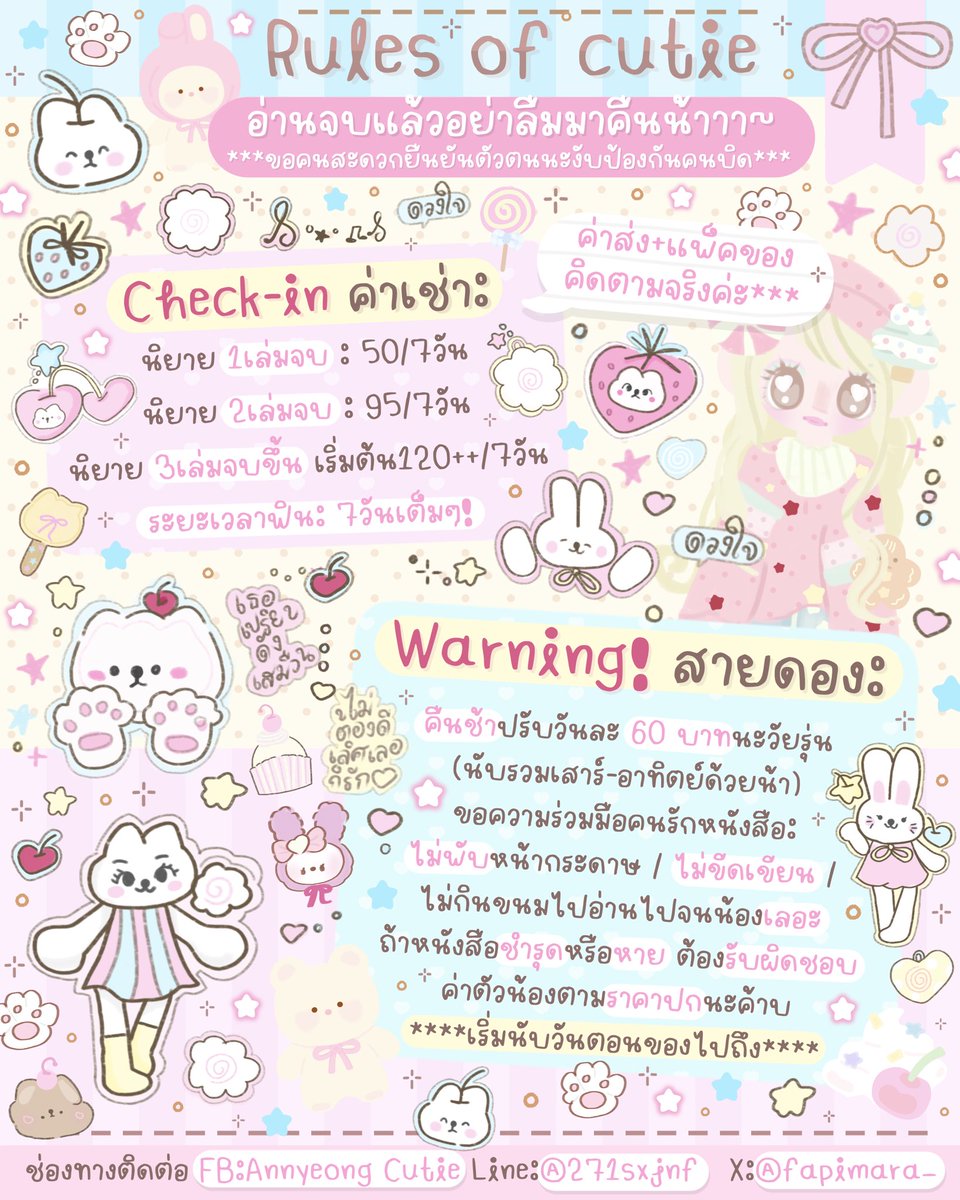 Rules of cutie
อ่านจบแล้วอย่าลืมมาคืนน้าาา~
***ขอคนสะดวกยืนยันตัวตนนะงับป้องกันคนบิด***
ดวงใจ
ค่าส่ง+แพ็คของ
คิดตามจริงค่ะ***
Check-in ค่าเช่า:
นิยาย 1เล่มจบ : 50/7วัน
นิยาย 2เล่มจบ : 95/7วัน
นิยาย 3เล่มจบขึ้น เริ่มต้น120++/7วัน
ระยะเวลาฟิน: 7วันเต็มๆ!
ดวงใจ
เธอ
เปรียบ
ดั่ง
เสมือน
Warning! สายดอง:
ไม่
ต้องดี
เลิศเลอ
ก็รัก
คืนช้าปรับวันละ 60 บาทนะวัยรุ่น
(นับรวมเสาร์-อาทิตย์ด้วยน้า)
ขอความร่วมมือคนรักหนังสือ:
ไม่พับหน้ากระดาษ / ไม่ขีดเขียน /
ไม่กินขนมไปอ่านไปจนน้องเลอะ
ถ้าหนังสือชำรุดหรือหาย ต้องรับผิดชอบ
ค่าตัวน้องตามราคาปกนะค้าบ
****เริ่มนับวันตอนของไปถึง****
ช่องทางติดต่อ FB:Annyeong Cutie Line:@271sxjnf X:@fapimara_